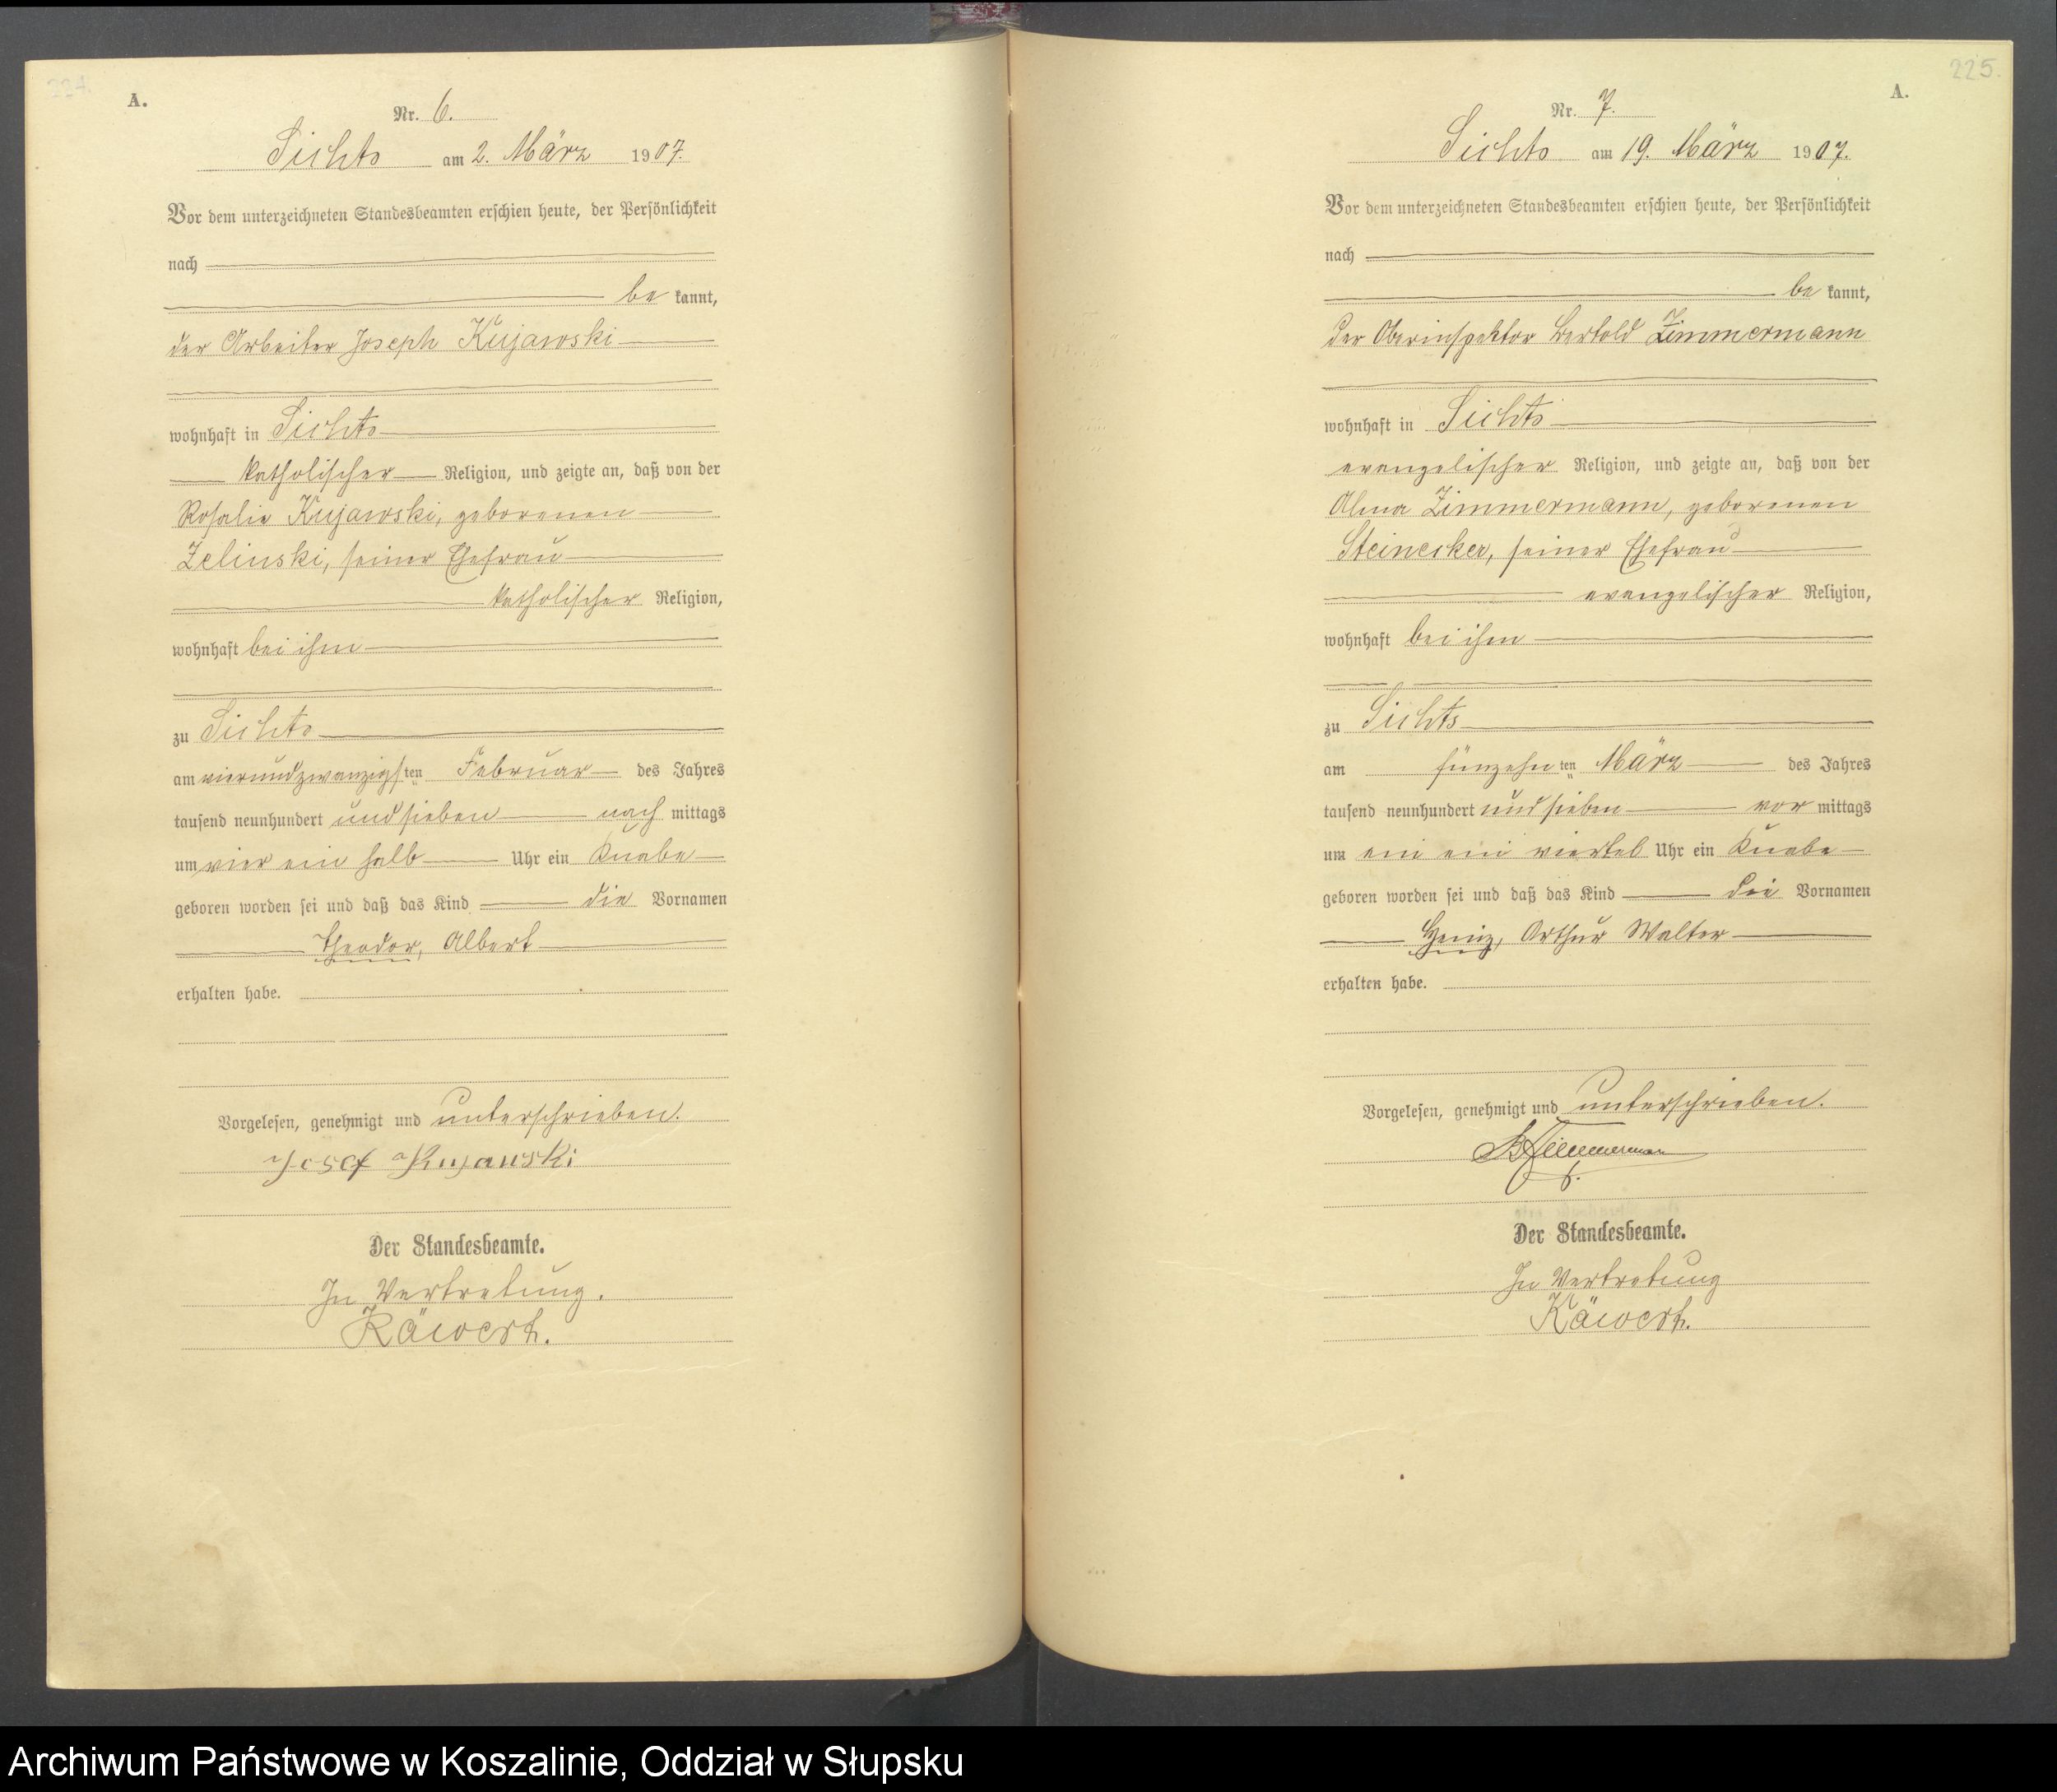 224.
A.
Nr. 6.
Sichts am 2. März 1907.
Vor dem unterzeichneten Standesbeamten erschien heute, der Persönlichkeit
nach
be kannt,
der Arbeiter Joseph Kujawski
wohnhaft in Sichts
katholischer Religion, und zeigte an, daß von der
Rosalie Kujawski, geborenen
Zelinski, seiner Ehefrau
katholischer Religion,
wohnhaft bei ihm
zu Sichts
am vierundzwanzigsten Februar des Jahres
tausend neunhundert und sieben nach mittags
um vier ein halb Uhr ein Knabe
geboren worden sei und daß das Kind die Vornamen
Theodor, Albert
erhalten habe.
Vorgelesen, genehmigt und unterschrieben.
Josef Kujawski
Der Standesbeamte.
In Vertretung.
Käwert.
225.
A.
Nr. 7.
Sichts am 19. März 1907.
Vor dem unterzeichneten Standesbeamten erschien heute, der Persönlichkeit
nach
be kannt,
der Oberinspektor Bertold Zimmermann
wohnhaft in Sichts
evangelischer Religion, und zeigte an, daß von der
Alma Zimmermann, geborenen
Steinecker, seiner Ehefrau
evangelischer Religion,
wohnhaft bei ihm
zu Sichts
am fünzehnten März des Jahres
tausend neunhundert und sieben vor mittags
um ein ein viertel Uhr ein Knabe
geboren worden sei und daß das Kind die Vornamen
Heinz, Arthur Walter
erhalten habe.
Vorgelesen, genehmigt und unterschrieben.
B Zimmermann
Der Standesbeamte.
In Vertretung
Käwert.
Archiwum Państwowe w Koszalinie, Oddział w Słupsku